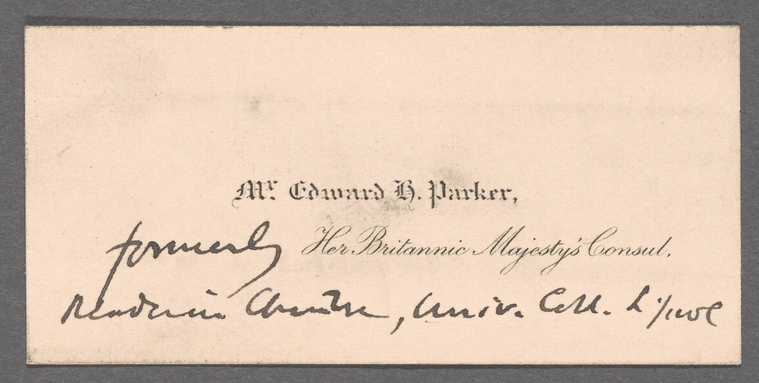 Mr. Edward H. Parker,
formerly Her Britannic Majesty's Consul.
Reader in Chinese, Univ. Coll. L'pool